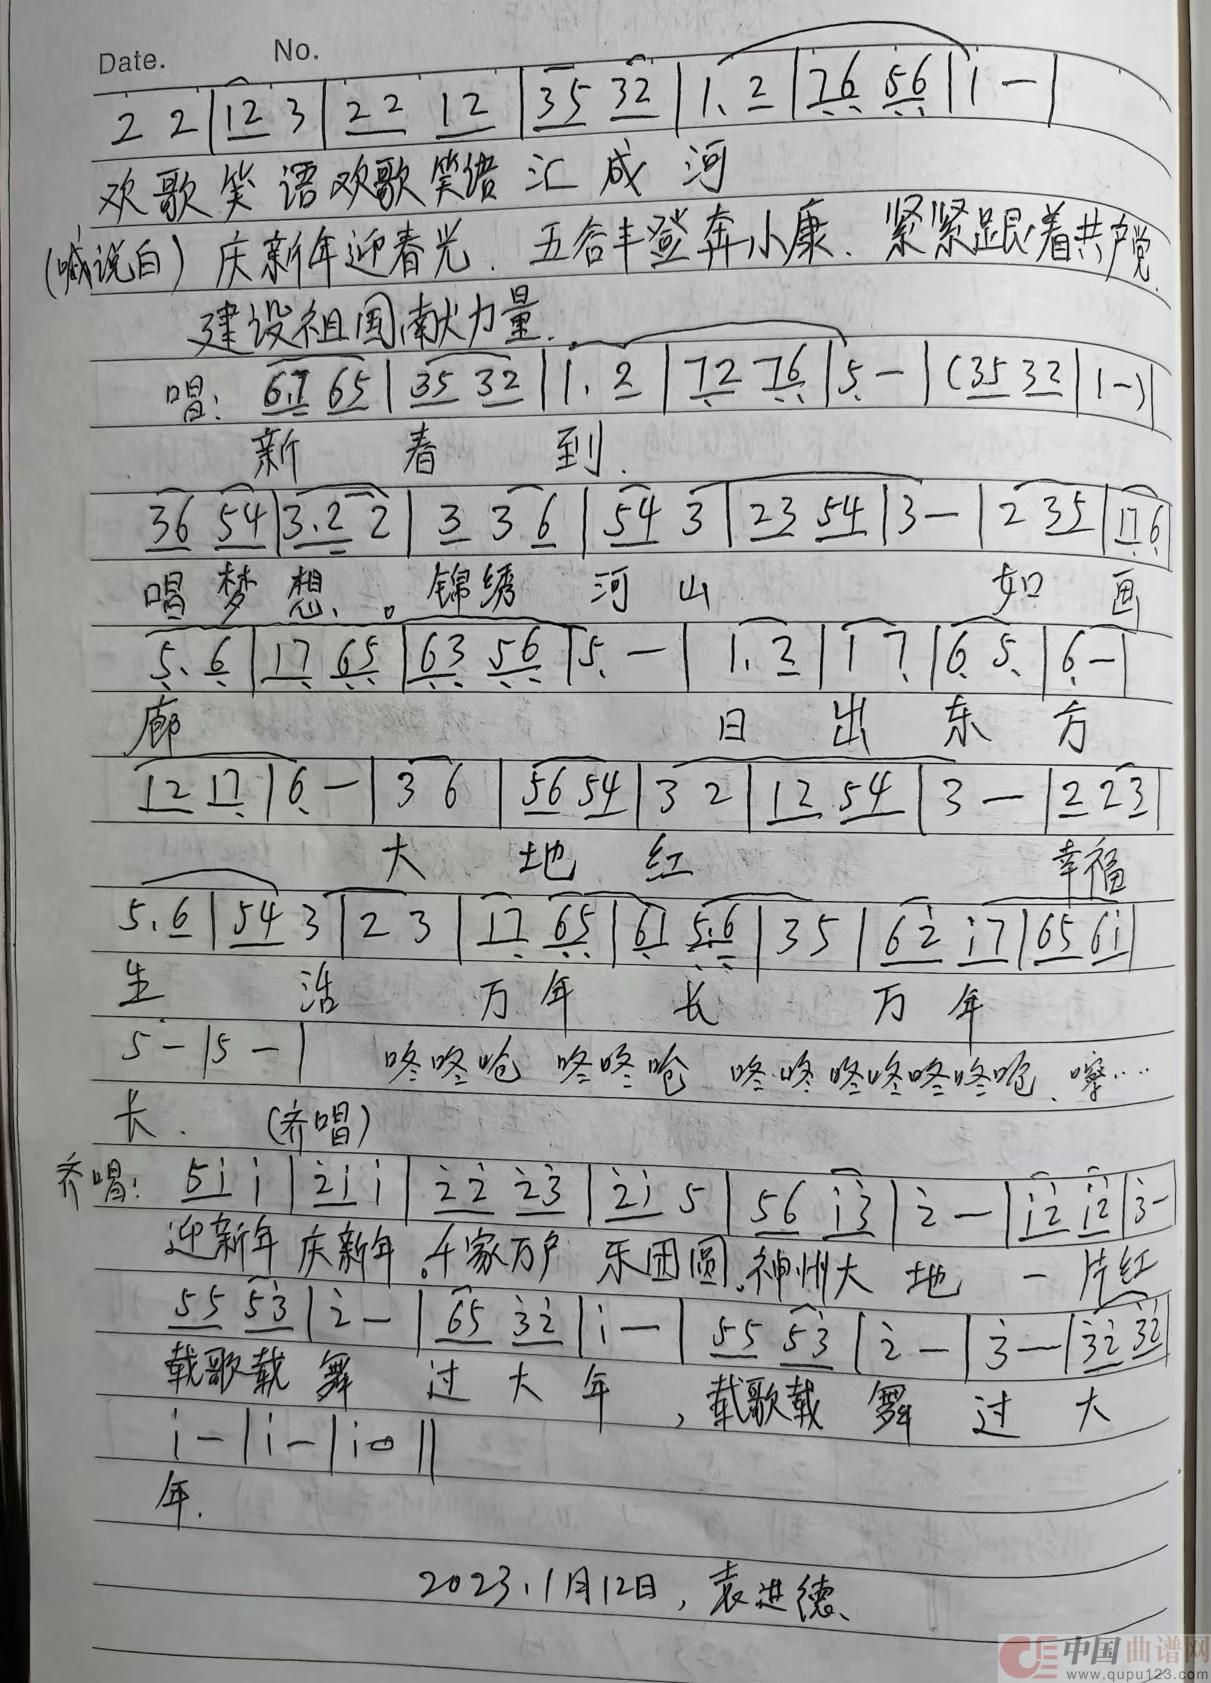 Date. No.
2 2 | 12 3 | 22 12 | 35 32 | 1. 2 | 76 56 | 1 — |
欢歌笑语欢歌笑语汇成河
(喊说白) 庆新年迎春光. 五谷丰登奔小康. 紧紧跟着共产党.
建设祖国献力量.
唱: 6.7 65 | 35 32 | 1. 2 | 72 76 | 5 — | (35 32 | 1 —) |
新春到.
36 54 | 3.2 2 | 3 3 6 | 54 3 | 23 54 | 3 — | 2 35 | 176
唱梦想、。锦绣河山 如画
5. 6 | 17 65 | 63 56 | 5 — | 1. 2 | 1 7 | 6 5 | 6 — |
廊 日出东方
12 17 | 6 — | 3 6 | 56 54 | 3 2 | 12 54 | 3 — | 2 23 |
大地红 幸福
5. 6 | 54 3 | 2 3 | 17 65 | 61 5.6 | 35 | 62 i7 | 65 6i |
生活万年长 万年
5 — | 5 — | 咚咚呛 咚咚呛 咚咚咚咚咚咚呛.嚓……
长. (齐唱)
齐唱: 5i i | 2i i | 22 23 | 2i 5 | 56 i3 | 2 — | i2 i2 | 3 —
迎新年 庆新年。千家万户 乐团圆.神州大地 一片红
55 53 | 2 — | 65 32 | i — | 55 53 | 2 — | 3 — | 32 32
载歌载舞过大年,载歌载舞过大
i — | i — | i 0 ‖
年.
2023.1月12日, 袁进德.
中国曲谱网
www.qupu123.com